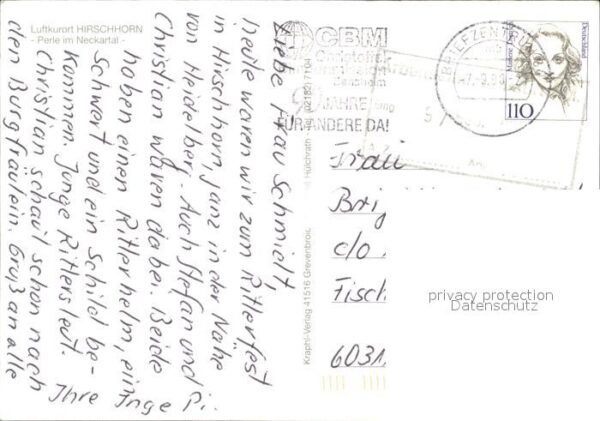 Luftkurort HIRSCHHORN
- Perle im Neckartal -
Liebe Frau Schmielt,
heute waren wir zum Ritterfest
in Hirschhorn, ganz in der Nähe
von Heidelberg. Auch Stefan und
Christian waren dabei. Beide
haben einen Ritterhelm, ein
Schwert und ein Schild be-
kommen. Junge Rittersleut.
Christian schaut schon nach
den Burgfräulein. Gruß an alle
Ihre Inge Pi.
Kraphl-Verlag 41516 Grevenbroich Hülchrath 02182/7104
CBM
Bensheim
JAHRE
FÜR ANDERE DA!
BRIEFZENTRUM
Deutschland
110
Frau
Brig
c/o
Fisch
6031
privacy protection
Datenschutz